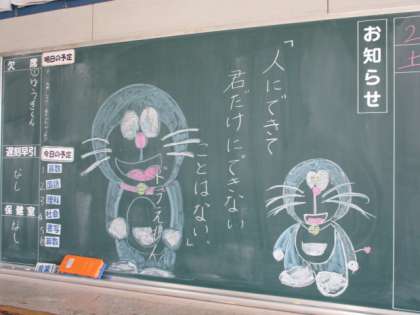 お知らせ
「人にできて
君だけにできない
ことはない。」
ドラえもん
明日の予定
欠席
①ゆうきくん
遅刻早引
なし
保健室
なし
今日の予定
算数
国語
理科
社会
算数
2
土